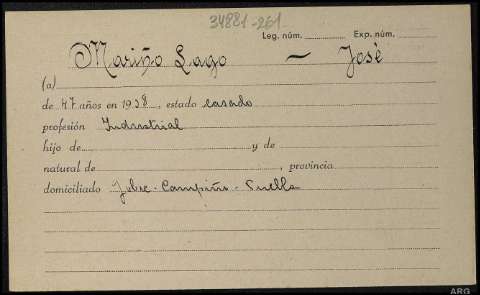 34881-261
Leg. núm. Exp. núm.
Mariño Lago — José
(a)
de 47 años en 1938, estado casado
profesión Industrial
hijo de y de
natural de , provincia
domiciliado Campiño -
ARG